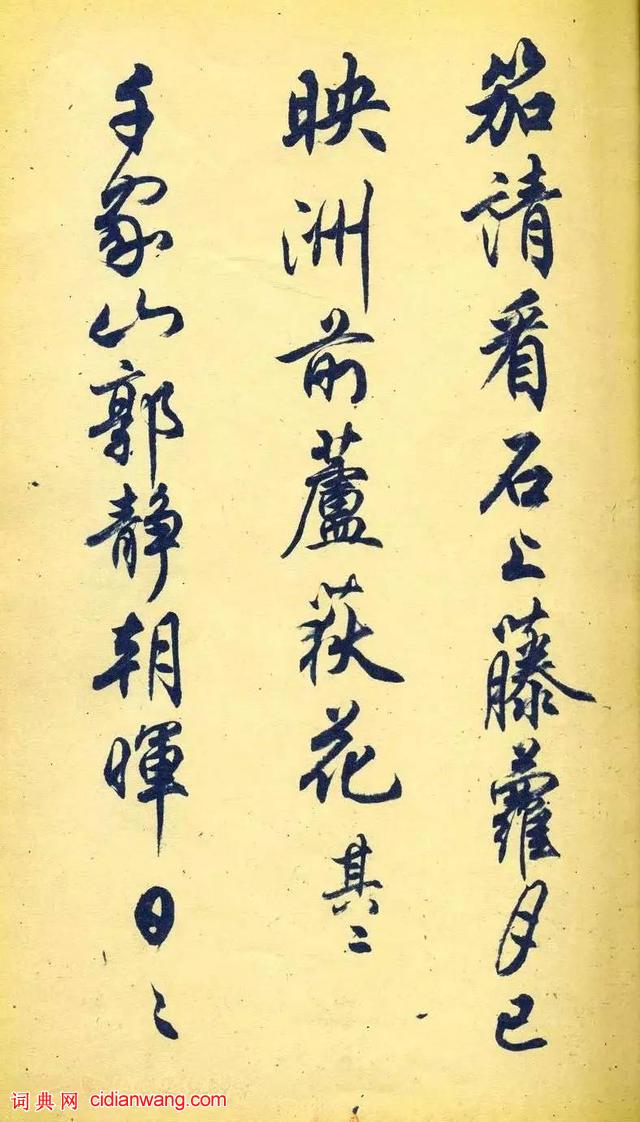 笳请看石上藤蘿月已
映洲前蘆荻花其二
千家山郭静朝暉日〻
词典网 cidianwang.com